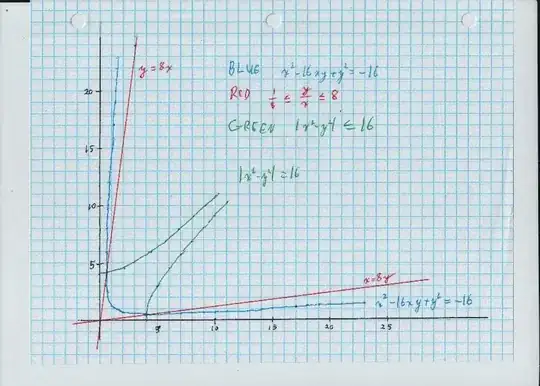 y=8x
BLUE x²-16xy+y²=-16
RED 1/8 ≤ y/x ≤ 8
GREEN |x²-y²| ≤ 16
|x²-y²|=16
20
15
10
5
x=8y
x²-16xy+y²=-16
5
10
15
20
25